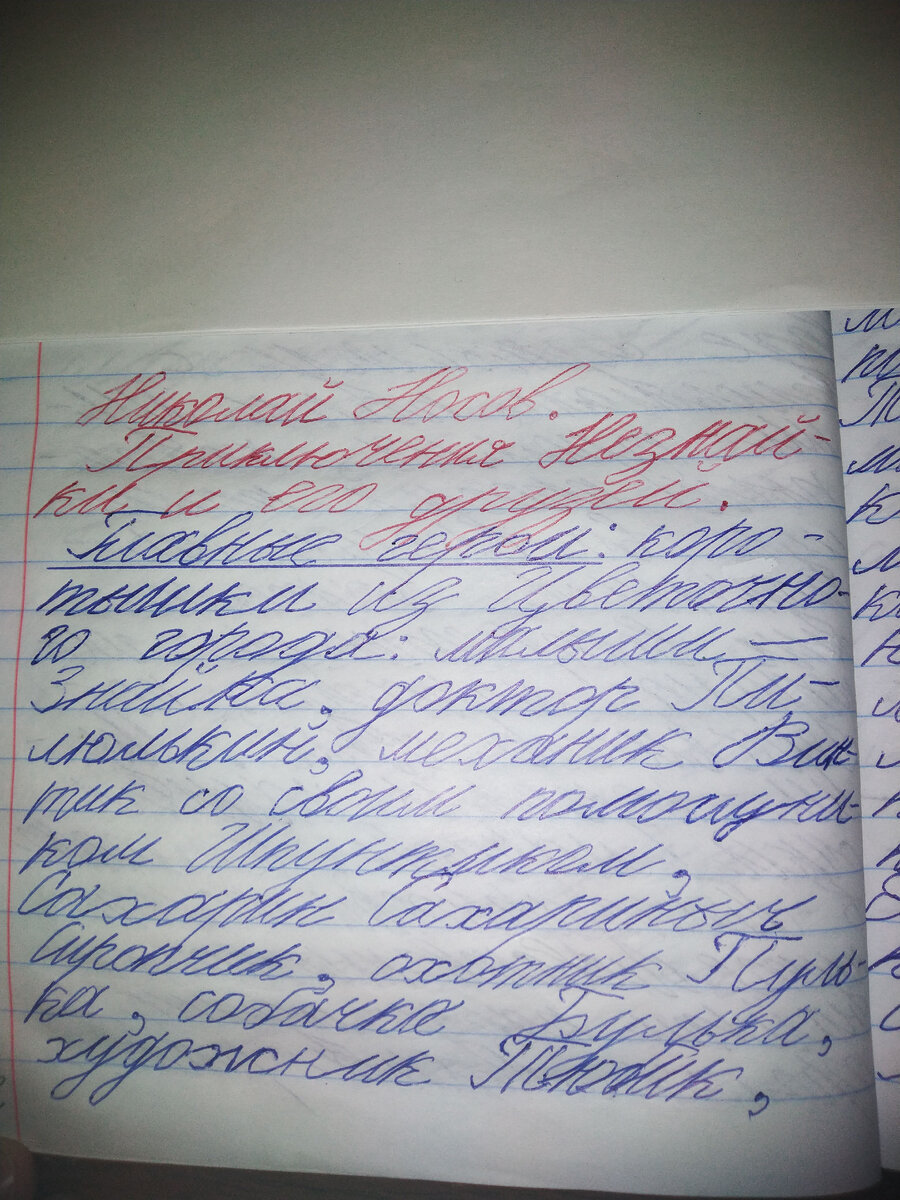 Николай Носов.
Приключения Незнай-
ки и его друзей.
Главные герои: коро-
тышки из Цветочно-
го города: малыши —
Знайка, доктор Пи-
люлькин, механик Вин-
тик со своим помощни-
ком Шпунтиком,
Сахарин Сахариныч
Сиропчик, охотник Пуль-
ка, собачка Булька,
художник Тюбик,